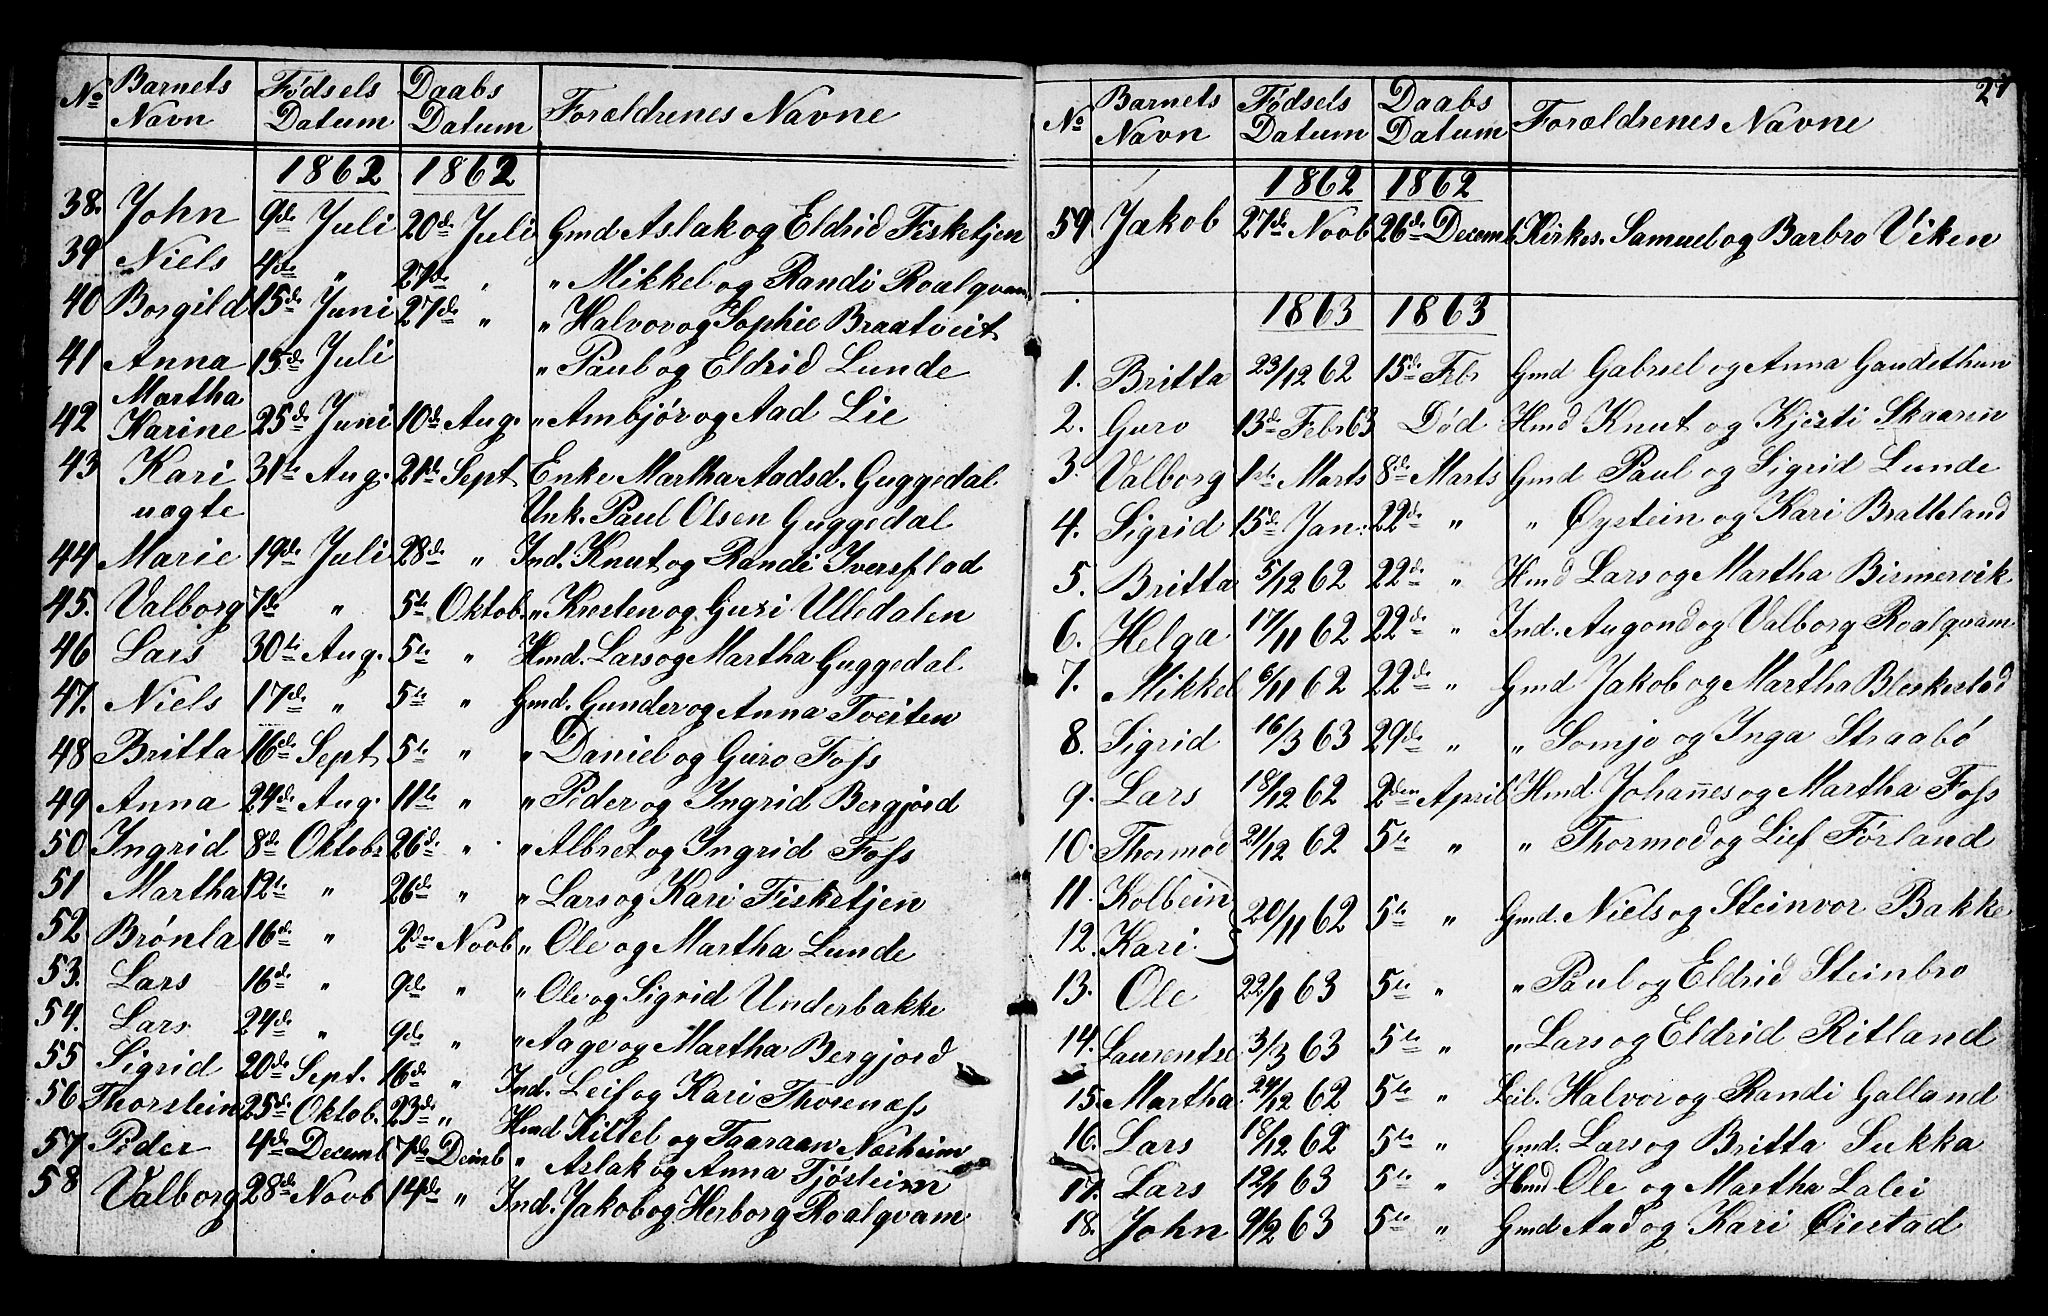 No Barnets Navn Fødsels Datum Daabs Datum Forældrenes Navne
1862 1862
38. John 9de Juli 20de Juli Gmd Aslak og Eldrid Fisketjen
39 Niels 4de " 27de " " Mikkel og Randi Roalqvam
40 Borgild 15de Juni 27de " " Halvor og Sophie Braatveit
41 Anna 15de Juli " Paul og Eldrid Lunde
42 Martha Karine 25de Juni 10de Aug. " Ambjør og Aad Lie
43 Kari 31te Aug. 21de Sept Enke Martha Aadsd. Guggedal
uægte Unk. Paul Olsen Guggedal
44 Marie 19de Juli 28de " Ind. Knut og Randi Iversflad
45. Valborg 7de " 5te Oktob. " Kresten og Guri Ulledalen
46 Lars 30te Aug. 5te " Hmd. Lars og Martha Guggedal
47. Niels 17de " 5te " Gmd. Gunder og Anna Tveiten
48 Britta 16de Sept 5te " " Daniel og Guro Foss
49 Anna 24de Aug. 11te " " Peder og Ingrid Bergjord
50 Ingrid 8de Oktobr 26de " " Albret og Ingrid Foss
51 Martha 12te " 26de " " Lars og Kari Fisketjen
52 Brønla 16de " 2den Novb " Ole og Martha Lunde
53. Lars 16de " 9de " " Ole og Sigrid Underbakke
54. Lars 24de " 9de " " Aage og Martha Bergjord
55 Sigrid 20de Sept. 16de " Ind. Leif og Kari Thorenæss
56 Thorstein 25de Oktob. 23de " Hmd Kittel og Taaraan Næsheim
57 Peder 4de Decemb 7de Decmb " Aslak og Anna Fjøsteim
58 Valborg 28de Novb 14de " Ind. Jakob og Herborg Roalqvam
27
No Barnets Navn Fødsels Datum Daabs Datum Forældrenes Navne
1862 1862
59 Jakob 27de Novb 26de Decemb Kirkes. Samuel og Barbro Viken
1863 1863
1. Britta 23/12 62 15de Febr Gmd Gabriel og Anna Gaudethun
2. Guro 13de Febr 63 Død Hmd Knut og Kjersti Skaarin
3. Valborg 1ste Marts 8de Marts Gmd Paul og Sigrid Lunde
4. Sigrid 15de Jan: 22de " " Øystein og Kari Bratteland
5. Britta 5/12 62 22de " Hmd Lars og Martha Birmervik
6. Helga 17/11 62 22de " Ind. Augond og Valborg Roalqvam
7. Mikkel 6/11 62 22de " Gmd Jakob og Martha Bleskestad
8. Sigrid 16/3 63 29de " " Somjo og Inga Straabø
9. Lars 18/12 62 2den April Hmd. Johannes og Martha Foss
10. Thormod 21/12 62 5te " " Thormod og Lief Førland
11. Kolbein
12. Kari } 20/11 62 5te " Gmd. Niels og Steinvor Bakke
13. Ole 22/1 63 5te " " Paul og Eldrid Steinbro
14. Laurentse 3/3 63 5te " " Lars og Eldrid Ritland
15. Martha 24/12 62 5te " Leil. Halvor og Randi Galland
16. Lars 18/12 62 5te " Gmd. Lars og Britta Sukka
17. Lars 12/1 63 5te " Hmd Ole og Martha Lalei
18. John 9/2 63 5te " Gmd Aad og Kari Øiestad